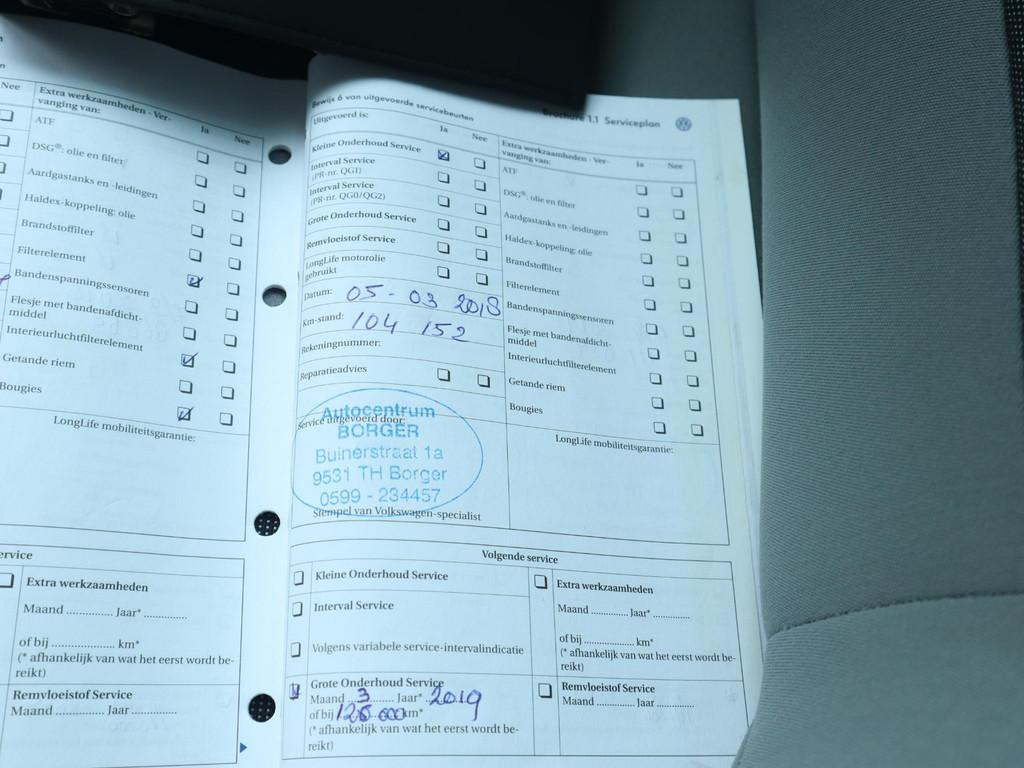 Nee
Extra werkzaamheden - Ver-
vanging van:
Ja
Nee
ATF
DSG®: olie en filter
Aardgastanks en -leidingen
Haldex-koppeling: olie
Brandstoffilter
Filterelement
Bandenspanningssensoren
Flesje met bandenafdicht-
middel
Interieurluchtfilterelement
Getande riem
Bougies
LongLife mobiliteitsgarantie:
ervice
Extra werkzaamheden
Maand .............. Jaar* .............
of bij .................... km*
(* afhankelijk van wat het eerst wordt be-
reikt)
Remvloeistof Service
Maand .............. Jaar .............
Bewijs 6 van uitgevoerde servicebeurten
Brochure 1.1 Serviceplan
Uitgevoerd is:
Ja
Nee
Kleine Onderhoud Service
Interval Service
(PR-nr. QG1)
Interval Service
(PR-nr. QG0/QG2)
Grote Onderhoud Service
Remvloeistof Service
LongLife motorolie
gebruikt
Datum: 05 - 03 2018
Km-stand: 104 152
Rekeningnummer:
Reparatieadvies
Service uitgevoerd door:
Autocentrum
BORGER
Buinerstraat 1a
9531 TH Borger
0599 - 234457
Stempel van Volkswagen-specialist
Extra werkzaamheden - Ver-
vanging van:
Ja
Nee
ATF
DSG®: olie en filter
Aardgastanks en -leidingen
Haldex-koppeling: olie
Brandstoffilter
Filterelement
Bandenspanningssensoren
Flesje met bandenafdicht-
middel
Interieurluchtfilterelement
Getande riem
Bougies
LongLife mobiliteitsgarantie:
Volgende service
Kleine Onderhoud Service
Interval Service
Volgens variabele service-intervalindicatie
Grote Onderhoud Service
Maand 3 Jaar* 2019
of bij km*
(* afhankelijk van wat het eerst wordt be-
reikt)
Extra werkzaamheden
Maand ............ Jaar* ............
of bij .................... km*
(* afhankelijk van wat het eerst wordt be-
reikt)
Remvloeistof Service
Maand ............ Jaar .............